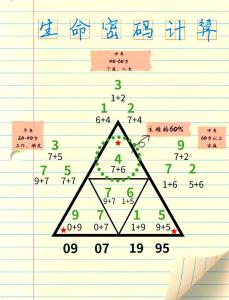 生命密码计算
中年
40-60岁
子女
3
1+2
1 2
6+4 7+4
早年
20-40岁
工作、朋友
主性格60%
中年
60岁以上
3
7+5
4
7+6
9
7+2
7 5
9+7 7+5
7 6
0+7 1+5
2 7
1+6 5+6
9 7 1 5
0+9 0+7 1+9 9+5
09 07 19 95